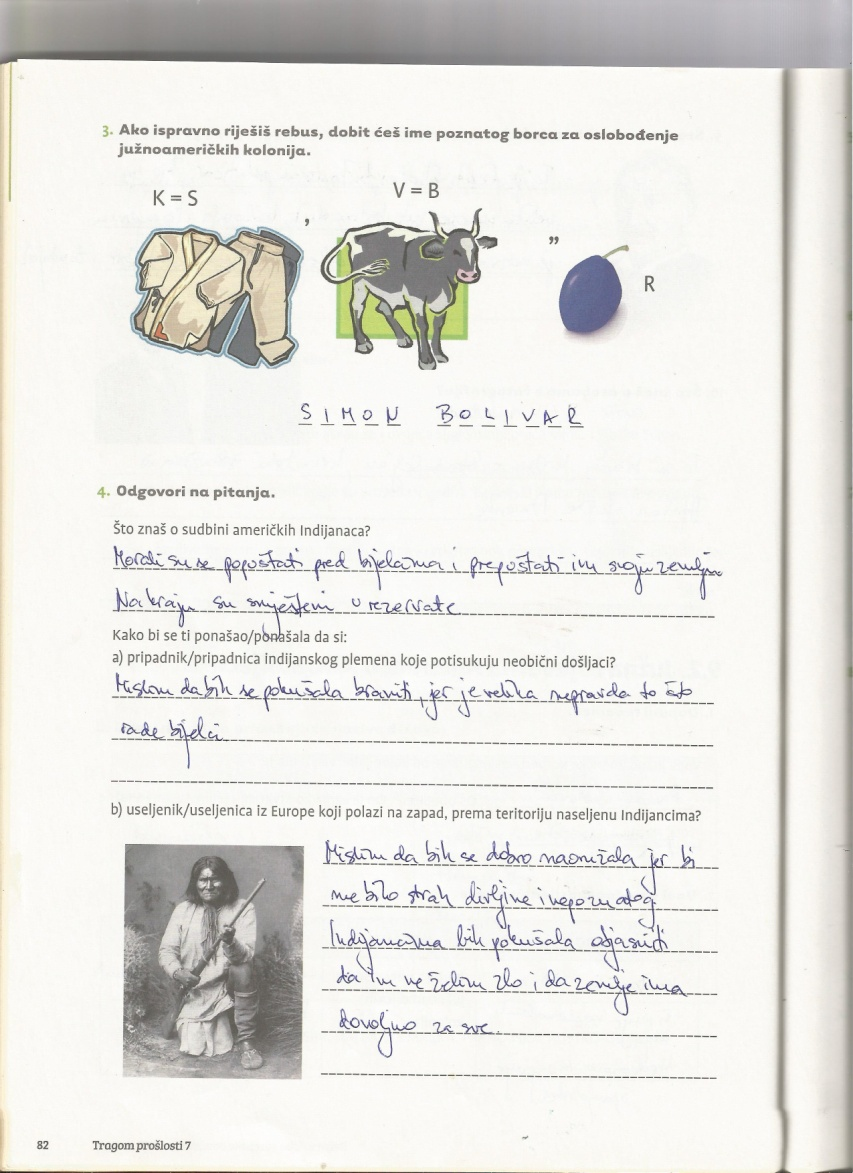 3. Ako ispravno riješiš rebus, dobit ćeš ime poznatog borca za oslobođenje
južnoameričkih kolonija.
K = S
V = B
,
”
R
SIMON BOLIVAR
4. Odgovori na pitanja.
Što znaš o sudbini američkih Indijanaca?
Morali su se popuštati pred bijelcima i prepuštati im svoju zemlju.
Na kraju su smješteni u rezervate
Kako bi se ti ponašao/ponašala da si:
a) pripadnik/pripadnica indijanskog plemena koje potisukuju neobični došljaci?
Mislim da bih se pokušala braniti, jer je velika nepravda to što
rade bijelci
b) useljenik/useljenica iz Europe koji polazi na zapad, prema teritoriju naseljenu Indijancima?
Mislim da bih se dobro naoružala jer bi
me bilo strah divljine i nepoznatog.
Indijancima bih pokušala objasniti
da im ne želim zlo i da zemlje ima
dovoljno za sve.
82 Tragom prošlosti 7